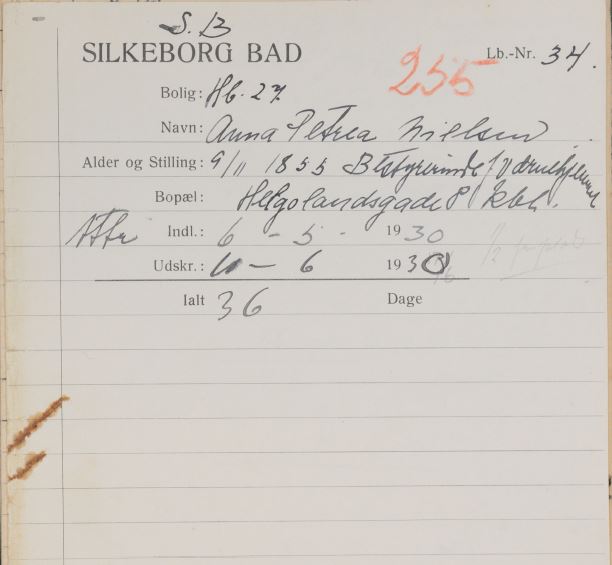 S. B
SILKEBORG BAD
255 Lb.-Nr. 34.
Bolig: Hb. 27
Navn: Anna Petrea Nielsen
Alder og Stilling: 9/11 1855 Bestyrerinde f/ Værnehjemmet
Bopæl: Helgolandsgade 8 Kbh.
Indl.: 6 - 5 - 1930
Udskr.: 11 - 6 1930
Ialt 36 Dage